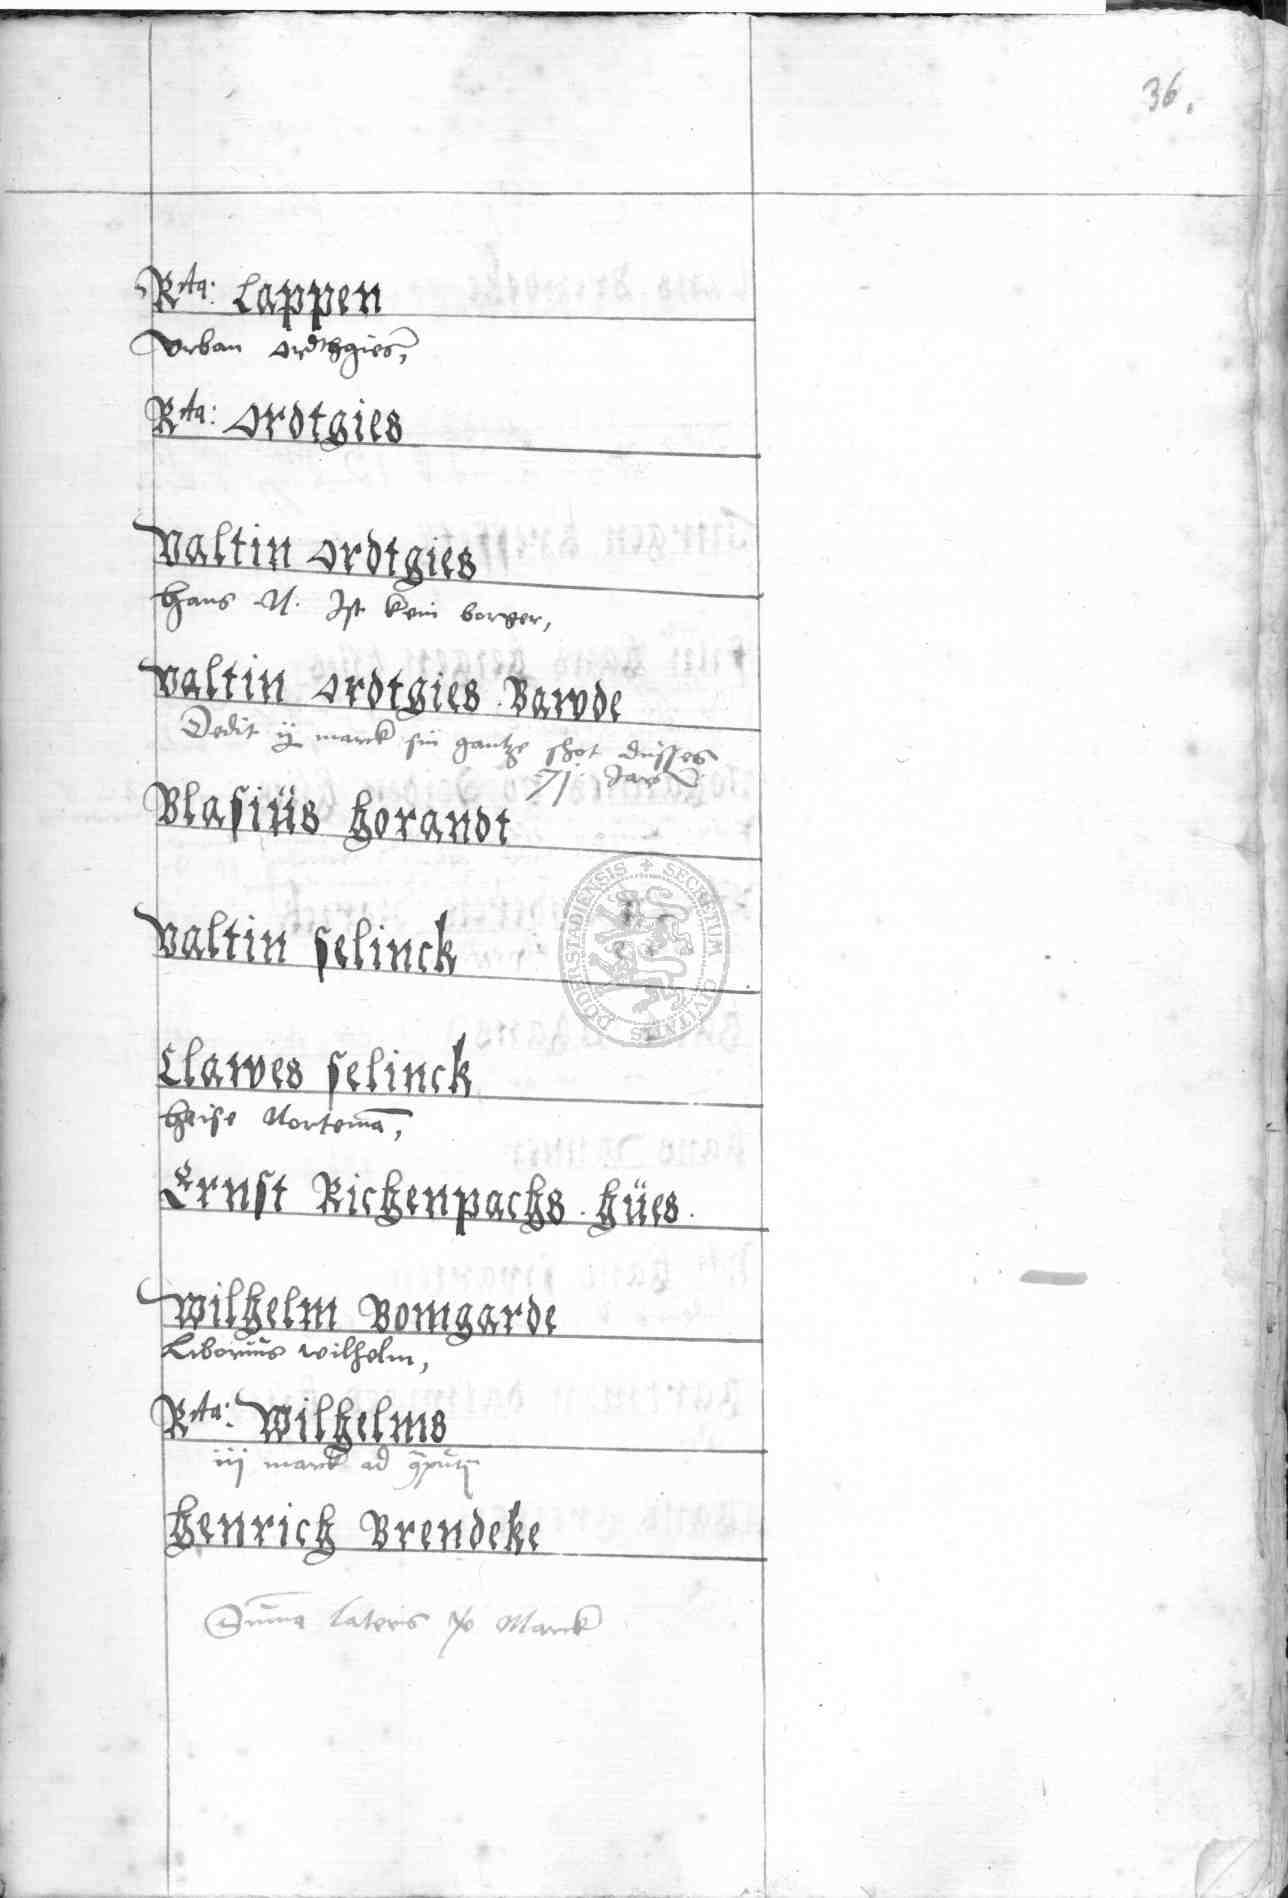 36.
Rta: Lappen
Urban Ordthgies,
Rta: Ordtgies
Valtin Ordtgies
Hans N. Ist kein borger,
Valtin Ordtgies Bawde
Dedit ij marck sin gantze shot disses
71 Jars
Blasiüs Horandt
Valtin Selinck
Clawes Selinck
Heise Nortemā,
Ernst Richenpachs. Hües.
Wilhelm Bomgarde
Liborius Wilhelm,
Rta: Wilhelms
iij marck ad
Henrich Brendeke
Sum̄a Lateris Marck
SECRETUM CIVITATIS DUDERSTADIENSIS